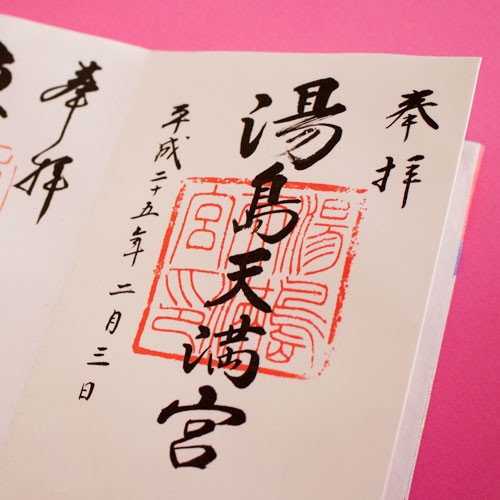 奉拝
湯島天満宮
平成二十五年二月三日
奉拝